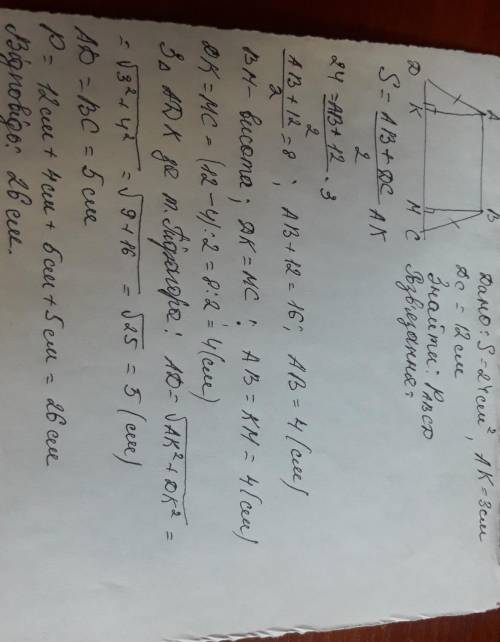 A B
D K M C
Дано: S = 24 см², AK = 3 см
DC = 12 см
Знайти: P ABCD
Розв'язання:
S = AB + DC / 2 AK
24 = AB + 12 / 2 · 3
AB + 12 / 2 = 8 ; AB + 12 = 16; AB = 4 (см)
BM - висота; DK = MC ; AB = KM = 4 (см)
DK = MC = (12 - 4) : 2 = 8 : 2 = 4 (см)
З Δ ADK за т. Піфагора: AD = √AK² + DK² =
= √3² + 4² = √9 + 16 = √25 = 5 (см)
AD = BC = 5 см
P = 12 см + 4 см + 5 см + 5 см = 26 см
Відповідь: 26 см.